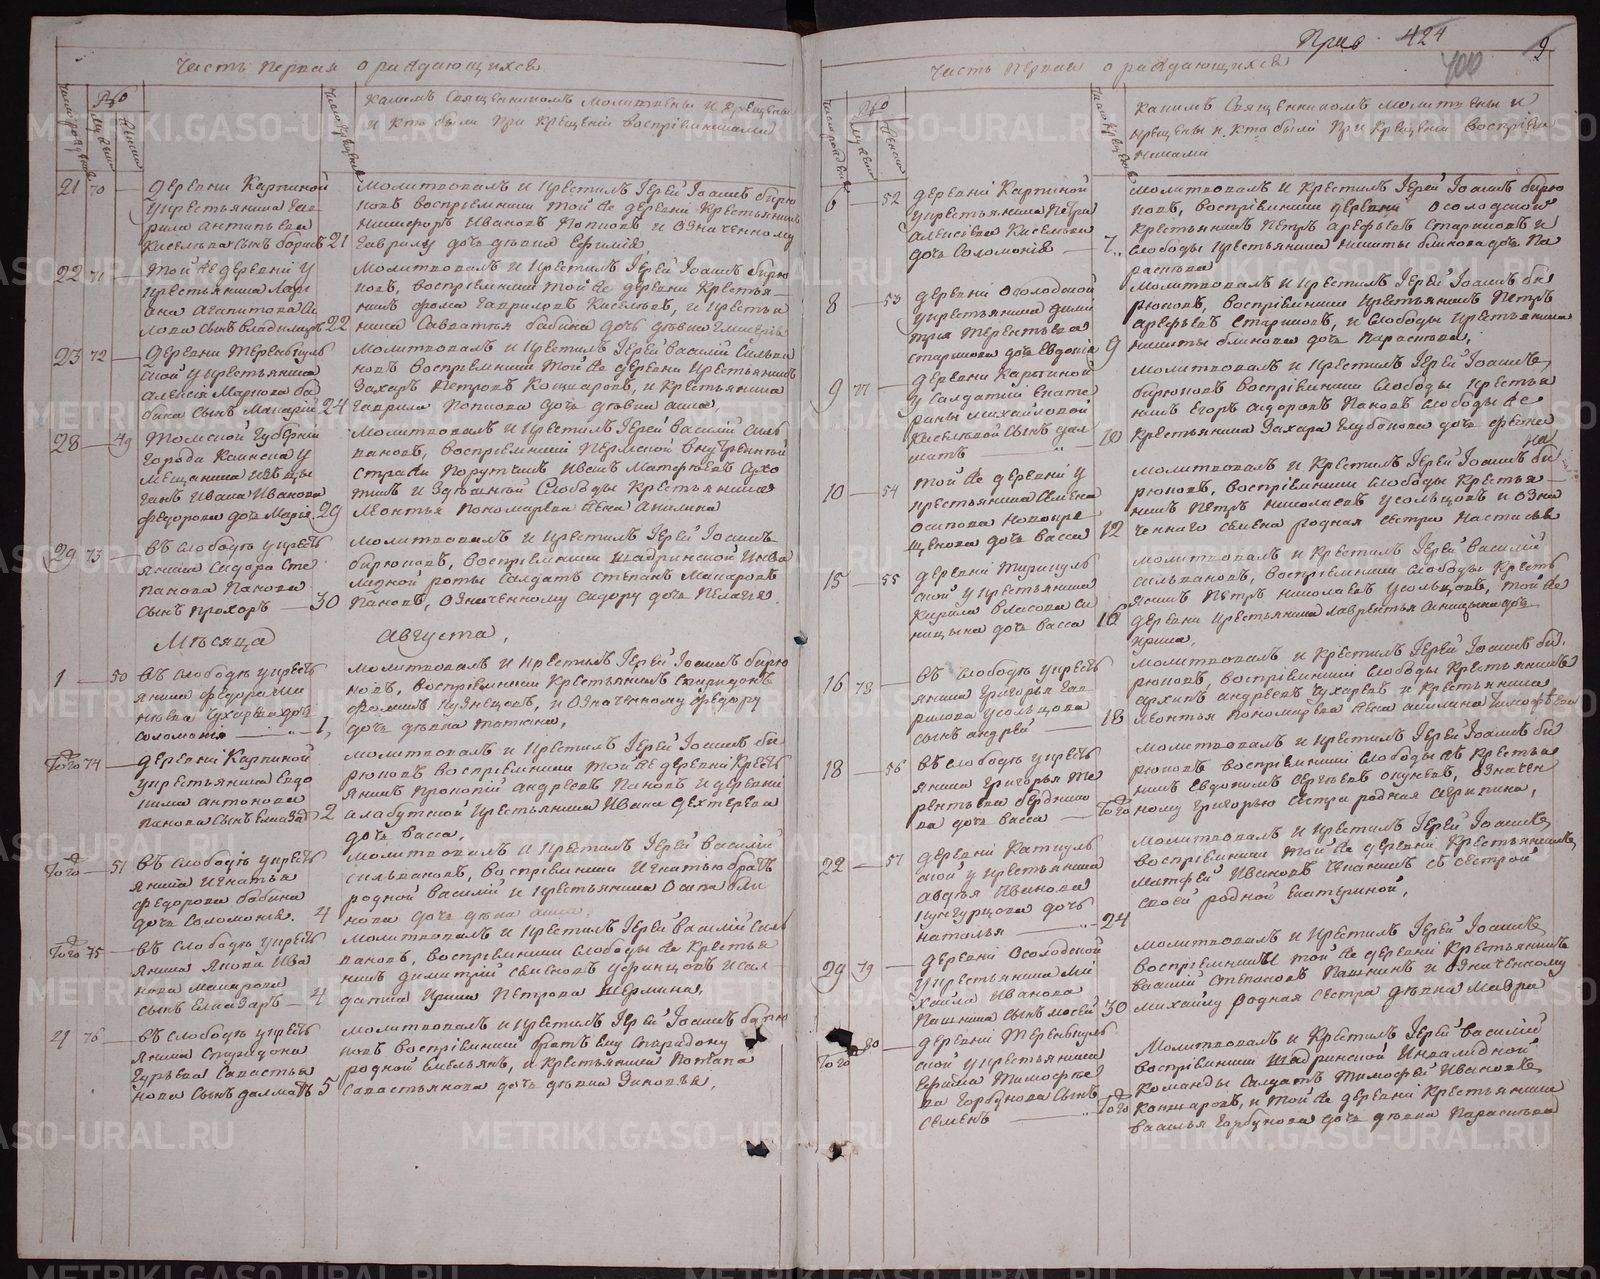 Часть первая о раждающихся
Каким Священником молитвены и крещены
и кто были при крещении восприемниками
21 70 деревни Карпиной
у крестьянина Гав
рила Антипьева
Кисельва сын Борис 21
молитвовал и крестил Иерей Иоанн Бирю
ков восприемники той же деревни крестьянин
Никифор Иванов Попков и означенному
Гаврилу дочь девка Ефимия
22 71 той же деревни у
крестьянина
22
молитвовал и крестил Иерей Иоанн Бирю
ков, восприемники той же деревни крестья
нин Фома Гаврилов Кисельв, и крестья
нина Савватья Бабина дочь девка
23 72 деревни
ской у крестьянина
Алексия Маркова Ба
бина сын Макарий 24
молитвовал и крестил Иерей Василий Сильва
нов восприемники той же деревни крестьянин
Захар Петров Кошкаров, и крестьянина
Гаврила Попкова дочь девка Анна,
28 49 Томской губернии
города Каинска у
мещанина
Ивана Иванова
Федорова дочь Мария 29
молитвовал и крестил Иерей Василий Силь
ванов, восприемники Пермской внутренной
стражи порутчик Иван Матфиев Сухо
тин и здешней слободы крестьянина
Леонтья Пономарева жена Акилина
29 73 в слободе у кресть
янина Сидора Сте
панова Панова
сын Прохор 30
молитвовал и крестил Иерей Иоанн
Бирюков, восприемники Шадринской инва
лидной роты солдат Степан Макаров
Панов, означенному Сидору дочь Пелагея
Месяца Августа,
1 50 в слободе у кресть
янина Федора Ми
неева Чухарева дочь
Соломония 1,
молитвовал и крестил Иерей Иоанн Бирю
ков, восприемники крестьянин Спиридон
Фомин Кузнецов, и означенному Федору
дочь девка Татиана,
Того 74 деревни Карпиной
у крестьянина Евдо
кима Антонова
Панова сын Елиазар 2
молитвовал и крестил Иерей Иоанн Би
рюков восприемники той же деревни кресть
янин Прокопий Андреев Панов и деревни
Алабугской крестьянина Ивана Дехтерева
дочь Васса,
Того 51 в слободе у кресть
янина Игнатья
Федорова Бабина
дочь Соломония. 4
молитвовал и крестил Иерей Василий
Сильванов, восприемники Игнатью брат
родной Василий и крестьянина Осипа Бли
нова дочь девка Анна.
Того 75 в слободе у кресть
янина Якова Ива
нова Макарова
сын Елиазар 4
молитвовал и крестил Иерей Василий Силь
ванов, восприемники слободы же крестья
нин Димитрий Семенов Уфинцов и сол
датка Ирина Петрова Шермина,
21 76 в слободе у кресть
янина Спиридона
Гурьева Савастья
нова сын Далмат 5
молитвовал и крестил Иерей Иоанн Бирю
ков восприемники брат ему Спиридону
родной Емельян, и крестьянина Потапа
Савастьянова дочь девка Зиновья,
Прав. 424 9
400
Часть первая о раждающихся
Каким Священником молитвены и
крещены и кто были при крещении восприем
никами
6 52 деревни Карпиной
у крестьянина Петра
Алексеева Кисельва
дочь Соломония 7
молитвовал и крестил Иерей Иоанн Бирю
ков, восприемники деревни Осолодской
крестьянин Петр Арефьев Стариков и
слободы крестьянина Никиты Блинова дочь Па
расковья
8 53 деревни Осолодской
у крестьянина Дими
трия Терентьева
Старикова дочь Евдокия 9
молитвовал и крестил Иерей Иоанн Би
рюков, восприемники крестьянин Петр
Арефьев Стариков, и слободы крестьянина
Никиты Блинова дочь Парасковья,
9 77 деревни Карпиной
у солдатки Екате
рины Михайловой
Кисельвой сын Дал
мат 10
молитвовал и крестил Иерей Иоанн
Бирюков восприемники слободы крестья
нин Егор Сидоров Панов слободы же
крестьянина Захара Глубокова дочь
10 54 той же деревни у
крестьянина Семена
Осипова Новокре
щенова дочь Васса 12
молитвовал и крестил Иерей Иоанн Би
рюков, восприемники слободы крестья
нин Петр Николаев Усольцов и озна
ченнаго Семена родная сестра Настасья
15 55 деревни
ской у крестьянина
Кирила Власова Си
ницына дочь Васса 16
молитвовал и крестил Иерей Василий
Сильванов, восприемники слободы кресть
янин Петр Николаев Усольцов, той же
деревни крестьянина Лаврентья Синицына дочь
Ирина,
16 78 в слободе у кресть
янина Григорья Гав
рилова Усольцова
сын Андрей 18
молитвовал и крестил Иерей Иоанн Би
рюков восприемники слободы крестьянин
Архип Андреев Чухарев и крестьянина
Леонтья Пономарева жена Акилина Тимофеева
18 56 в слободе у кресть
янина Григорья Те
рентьева Бердюги
на дочь Васса Того
молитвовал и крестил Иерей Иоанн Би
рюков восприемники слободы же крестья
нин Евдоким Сергеев Окунев, означен
ному Григорью сестра родная Агрипина,
22 57 деревни
ской у крестьянина
Авдея Иванова
Кунгурцова дочь
Наталья 24
молитвовал и крестил Иерей Иоанн,
восприемники той же деревни крестьянин
Матфей Иванов с сестрой
своей родной Екатериной,
29 79 деревни Осолодской
у крестьянина Ми
хайла Иванова
Пашкина сын Мосей 30
молитвовал и крестил Иерей Иоанн,
восприемники той же деревни крестьянин
Василий Степанов Пашкин и означенному
Михайлу родная сестра девка Мавра
Того 80 деревни
ской у крестьянина
Ефима Тимофее
ва Горбунова сын
Семен Того
молитвовал и крестил Иерей Василий
восприемники Шадринской инвалидной
команды солдат Тимофей Иванов
Кошкаров, и той же деревни крестьянина
Василья Горбунова дочь девка Парасковья